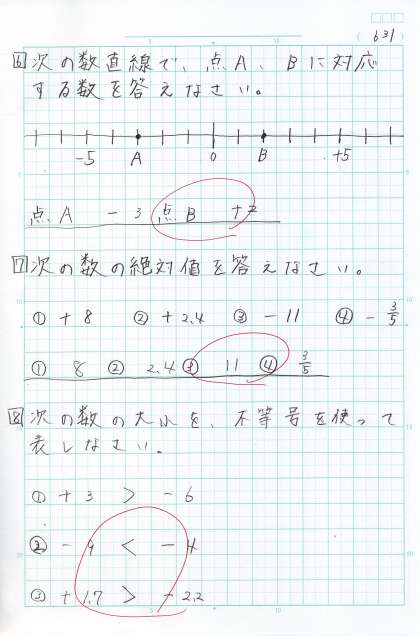 (631)
6 次の数直線で、点A、Bに対応
する数を答えなさい。
-5 A 0 B +5
点A -3 点B +2
7 次の数の絶対値を答えなさい。
① +8 ② +2.4 ③ -11 ④ -3/5
① 8 ② 2.4 ③ 11 ④ 3/5
8 次の数の大小を、不等号を使って
表しなさい。
① +3 > -6
② -9 < -4
③ +1.7 > -2.2